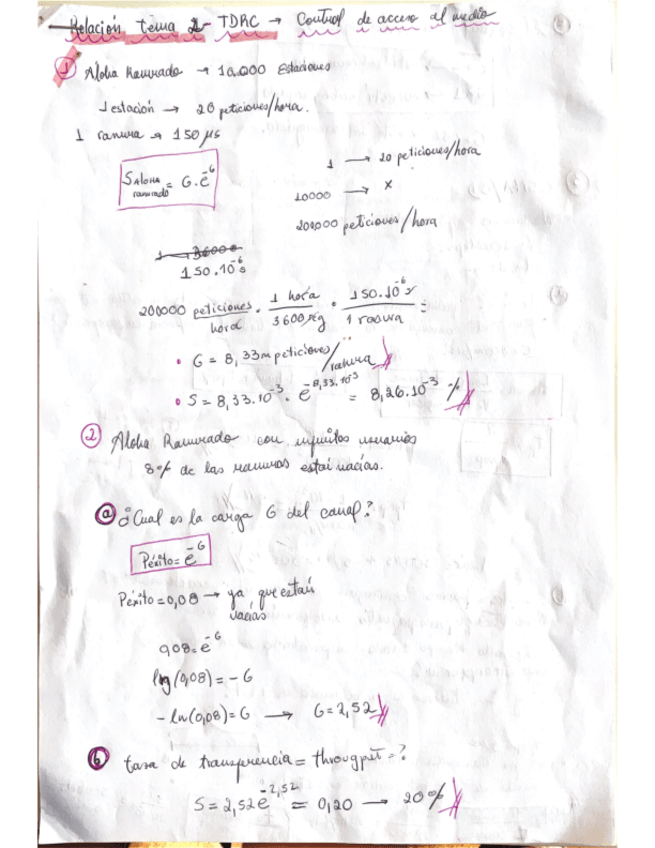 Relación tema 2 - TDRC → Control de acceso al medio
1 Aloha Ranurado → 10.000 Estaciones
1 estación → 20 peticiones/hora.
1 ranura → 150 μs
S ALOHA ranurado = G.e^-G
1 → 20 peticiones/hora
10000 → x
200000 peticiones/hora
1 3600 s
150.10^-6 s
200000 peticiones/hora · 1 hora/3600 seg · 150.10^-6 s/1 ranura =
• G = 8,33m peticiones/ranura
• S = 8,33.10^-3 . e^-8,33.10^-3 = 8,26.10^-3 %
2 Aloha Ranurado con infinitos usuarios
8% de las ranuras están vacías.
a ¿Cual es la carga G del canal?
Péxito = e^-G
Péxito = 0,08 → ya que están vacías
0,08 = e^-G
ln(0,08) = - G
- ln(0,08) = G → G = 2,52
b tasa de transferencia = througput = ?
S = 2,52 e^-2,52 = 0,20 → 20%